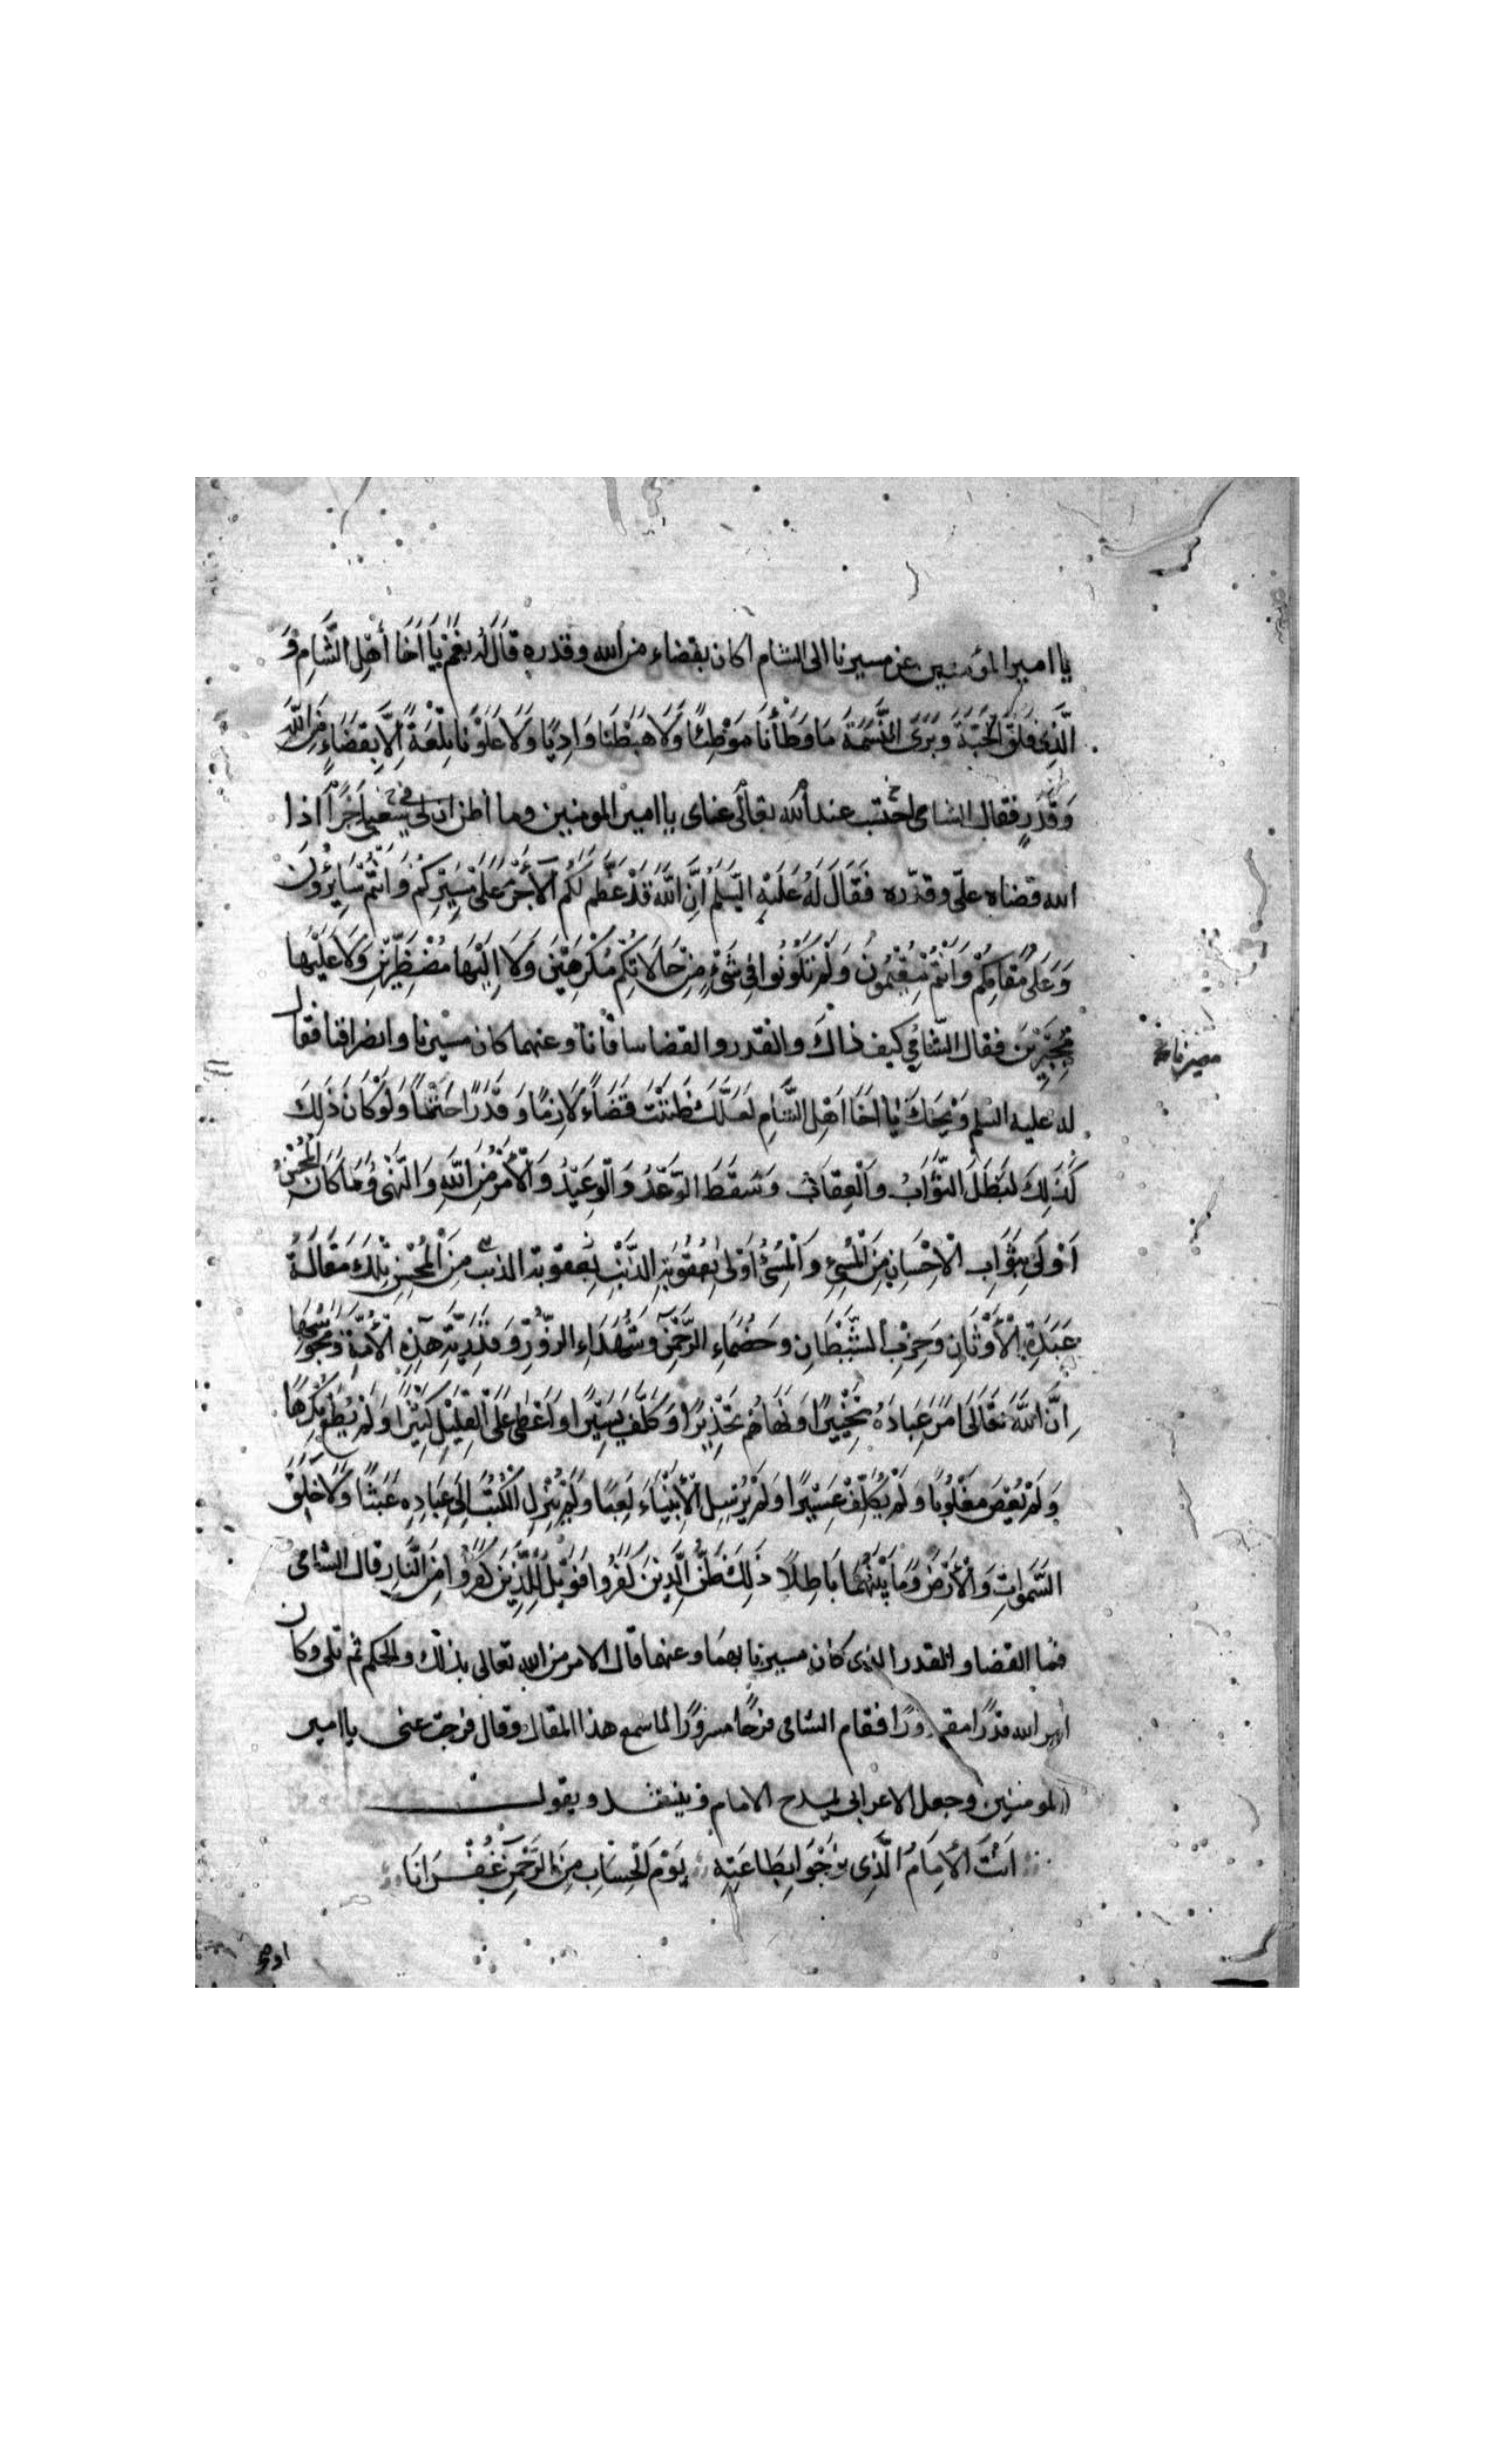 يا امير المؤمنين عن مسيرنا الى الشام اكان بقضاء من الله وقدره قَالَ لَهُ نَعَمْ يَا أَخَا أَهْلِ الشَّامِ وَ
الَّذِي فَلَقَ الْحَبَّةَ وَبَرَى النَّسَمَةَ مَا وَطَأْنَا مَوْطِئًا وَلَا هَبَطْنَا وَادِيًا وَلَا عَلَوْنَا تِلْعَةً إِلَّا بِقَضَاءٍ مِنَ اللَّهِ
وَقَدَرٍ فقال الشامى احتسب عند الله تعالى عناى يا امير المومنين وما أظن ان لى في سعيى أجرًا اذا
الله قضاه علىّ وقدّره فَقَالَ لَهُ عَلَيْهِ السَّلمُ أَنَّ اللَّهَ قَدْ عَظَّم لَكُم الْأَجْرَ عَلَى مَسِيرِكُمْ وَأَنْتُمْ سَائِرُونَ
وَعَلَى مُقَامِكُمْ وَأَنْتُمْ مُقِيمُونَ وَلَمْ تَكُونُوا فِي شَيْءٍ مِنْ حَالَاتِكُمْ مُكْرَهِينَ وَلَا إِلَيْهَا مُضْطَرِّينَ وَلَا عَلَيْهَا
مُجْبَرِينَ فقال الشامى كيف ذاك والقدر والقضا ساقانا وعنهما كان مسيرنا وانصرافنا فقال
مصيرنا
له عليه السلم وَيْحَكَ يَا أَخَا أَهْلِ الشَّامِ لَعَلَّكَ ظَنَنْتَ قَضَاءً لَازِمًا وَقَدَرًا حَتْمًا وَلَوْ كَانَ ذَلِكَ
كَذَلِكَ لَبَطَلَ الثَّوَابُ وَالْعِقَابُ وَسَقَطَ الْوَعْدُ وَالْوَعِيدُ وَالْأَمْرُ مِنَ اللَّهِ وَالنَّهْىُ وَمَا كَانَ الْمُحْسِنُ
أَوْلَى بِثَوَابِ الْإِحْسَانِ مِنَ الْمُسِيءِ وَالْمُسِيءُ أَوْلَى بِعُقُوبَةِ الذَّنْبِ بعقوبة الذنب مِنَ الْمُحْسِنِ تِلْكَ مَقَالَةُ
عَبَدَةِ الْأَوْثَانِ وَحِزْبِ الشَّيْطَانِ وَخُصَمَاءِ الرَّحْمَنِ وَشُهَدَاءِ الزُّورِ وَقَدَرِيَّةِ هَذِهِ الْأُمَّةِ وَمَجُوسِهَا
إِنَّ اللَّهَ تَعَالَى أَمَرَ عِبَادَهُ تَخْيِيرًا وَنَهَاهُمْ تَحْذِيرًا وَكَلَّفَ يَسِيرًا وَأَعْطَى عَلَى الْقَلِيلِ كَثِيرًا وَلَمْ يُطَعْ مُكْرِهًا
وَلَمْ يُعْصَ مَغْلُوبًا وَلَمْ يُكَلِّفْ عَسِيرًا وَلَمْ يُرْسِلِ الْأَنْبِيَاءَ لَعِبًا وَلَمْ يُنْزِلِ الْكُتُبَ إِلَى عِبَادِهِ عَبَثًا وَلَا خَلَقَ
السَّمَوَاتِ وَالْأَرْضَ وَمَا بَيْنَهُمَا بَاطِلًا ذَلِكَ ظَنُّ الَّذِينَ كَفَرُوا فَوَيْلٌ لِلَّذِينَ كَفَرُوا مِنَ النَّارِ قال الشامى
فما القضا والقدر الذى كان مسيرنا بهما وعنهما قال الامر من الله تعالى بذلك والحكم ثم تلى وكان
امر الله قدرًا مقدورًا فقام الشامى فرحًا مسرورًا لما سمع هذا المقال وقال فرجت عنى يا امير
المومنين وجعل الاعرابى يمدح الامام وينشد ويقول
أَنْتَ الْأِمَامُ الَّذِى نَرْجُو بِطَاعَتِهِ يَوْمَ الْحِسَابِ مِنَ الرَّحْمَنِ غُفْرَانَا